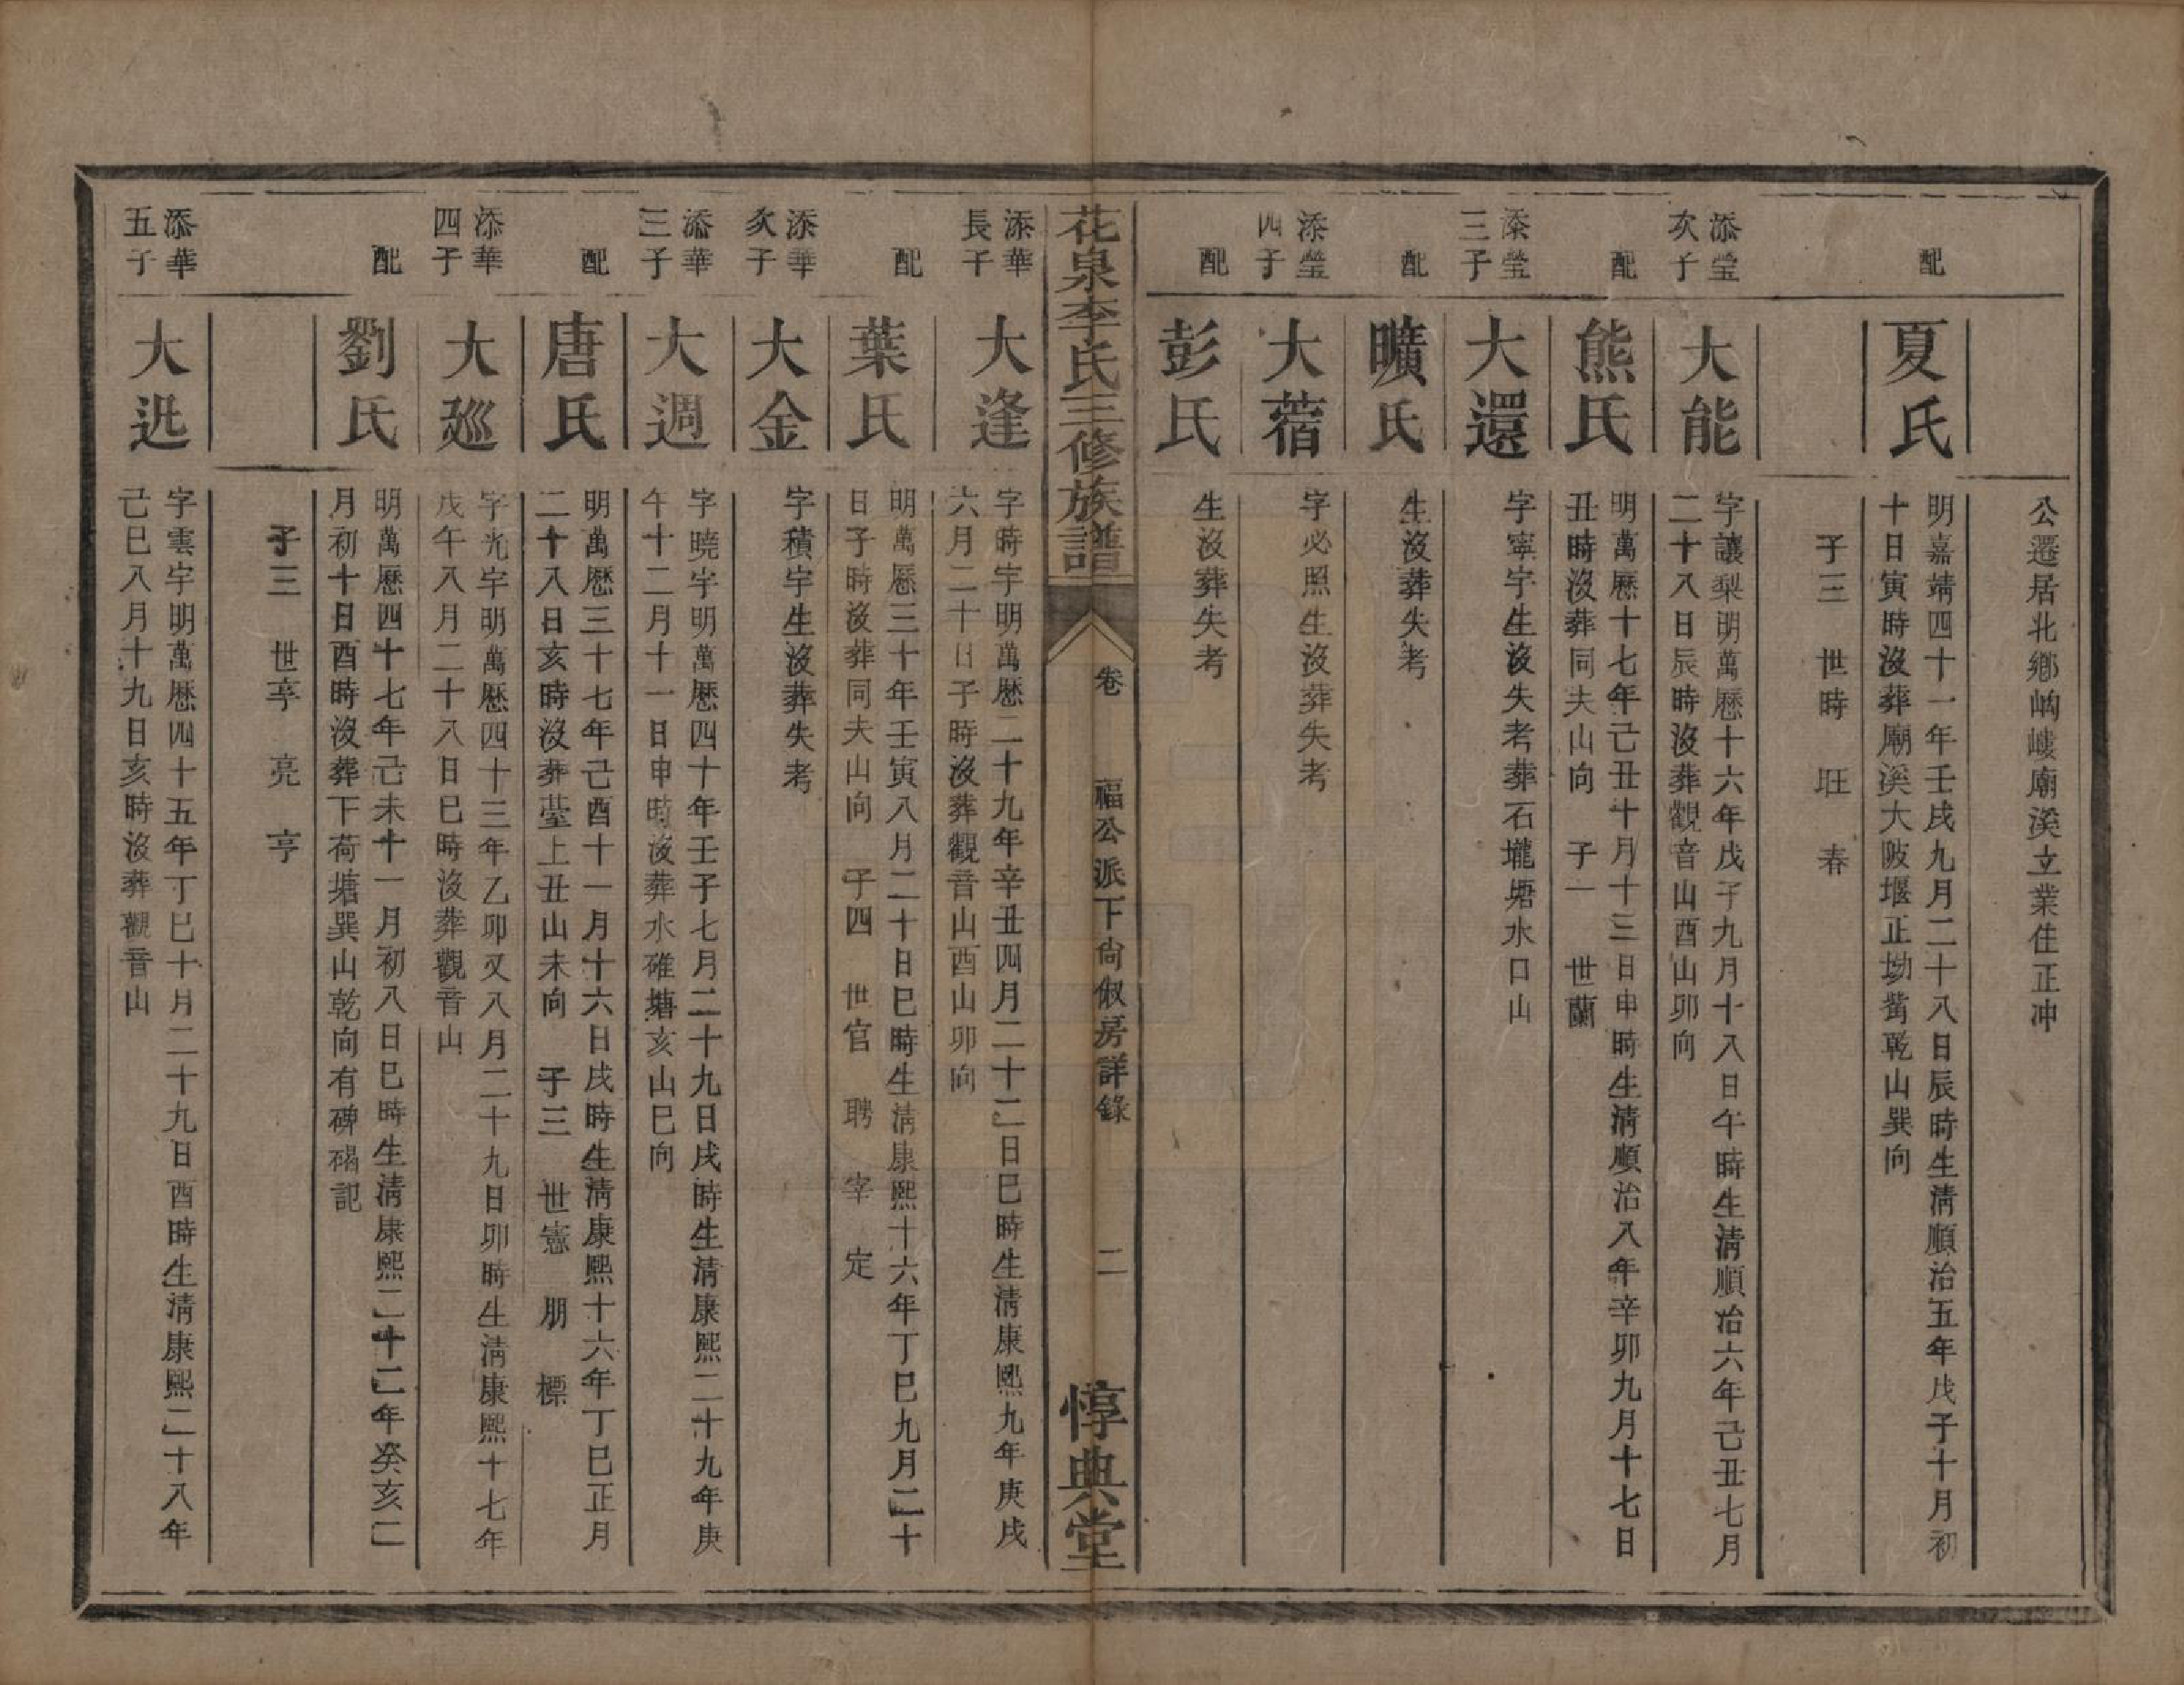 公遷居北鄉岣嶁廟溪立業住正沖
配
夏氏
明嘉靖四十一年壬戌九月二十八日辰時生淸順治五年戊子十月初
十日寅時沒葬廟溪大陂堰正坳觜乾山巽向
子三 世時 旺 春
添瑩
次子
大能
字讓梨明萬歷十六年戊子九月十八日午時生淸順治六年己丑七月
二十八日辰時沒葬觀音山酉山卯向
配
熊氏
明萬歷十七年己丑十月十三日申時生淸順治八年辛卯九月十七日
丑時沒葬同夫山向 子一 世蘭
添瑩
三子
大還
字寧宇生沒失考葬石壠塘水口山
配
曠氏
生沒葬失考
添瑩
四子
大蓿
字必照生沒葬失考
配
彭氏
生沒葬失考
花泉李氏三修族譜
卷
福公派下尙俶房詳錄
二
惇典堂
添華
長子
大逢
字時宇明萬歷二十九年辛丑四月二十二日巳時生淸康熙九年庚戌
六月二十日子時沒葬觀音山酉山卯向
配
葉氏
明萬歷三十年壬寅八月二十日巳時生淸康熙十六年丁巳九月二十
日子時沒葬同夫山向 子四 世官 聘 宰 定
添華
次子
大金
字積宇生沒葬失考
添華
三子
大週
字曉宇明萬歷四十年壬子七月二十九日戌時生淸康熙二十九年庚
午十二月十一日申時沒葬水碓塘亥山巳向
配
唐氏
明萬歷三十七年己酉十一月十六日戌時生淸康熙十六年丁巳正月
二十八日亥時沒葬䑓上丑山未向 子三 世憲 朋 標
添華
四子
大廵
字光宇明萬歷四十三年乙卯又八月二十九日卯時生淸康熙十七年
戊午八月二十八日巳時沒葬觀音山
配
劉氏
明萬歷四十七年己未十一月初八日巳時生淸康熙二十二年癸亥二
月初十日酉時沒葬下荷塘巽山乾向有碑碣記
子三 世孚 亮 亨
添華
五子
大選
字雲宇明萬歷四十五年丁巳十月二十九日酉時生淸康熙二十八年
己巳八月十九日亥時沒葬觀音山